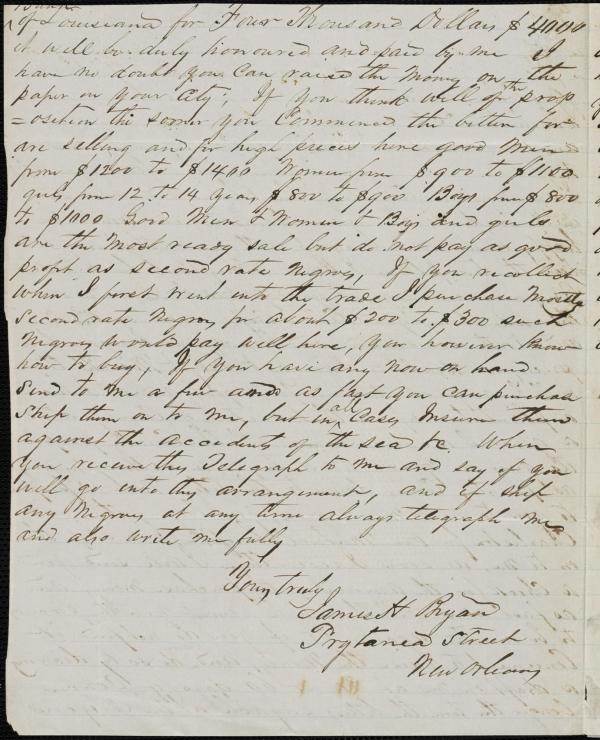 Bank
of Louisiana for Four Thousand Dollars $4000
it will be duly honoured and paid by me I
have no doubt you can raise the money on the
paper in your city; If you think well of the prop
=osition the sooner you commence the better for
are selling and for huge prices here good Men
from $1200 to $1400 Women from $900 to $1100
girls from 12 to 14 years $800 to $900 Boys from $800
to $1000 Good Men & Women & Boys and girls
are the most ready sale but do not pay as good
profit as second rate Negroes, If you recollect
when I first went into the trade I purchase Mostly
second rate Negroes for about $200 to $300 such
Negroes would pay well here, you however know
how to buy, If you have any now on hand
send to me a few and as fast you can purchase
ship them on to me, but in all cases Insure them
against the accidents of the sea &c. When
you receive this Telegraph to me and say if you
will go into this arrangement, and if ship
any Negroes at any time always telegraph me
and also write me fully
Yours truly
James H Bryan
Prytanea Street
New Orleans